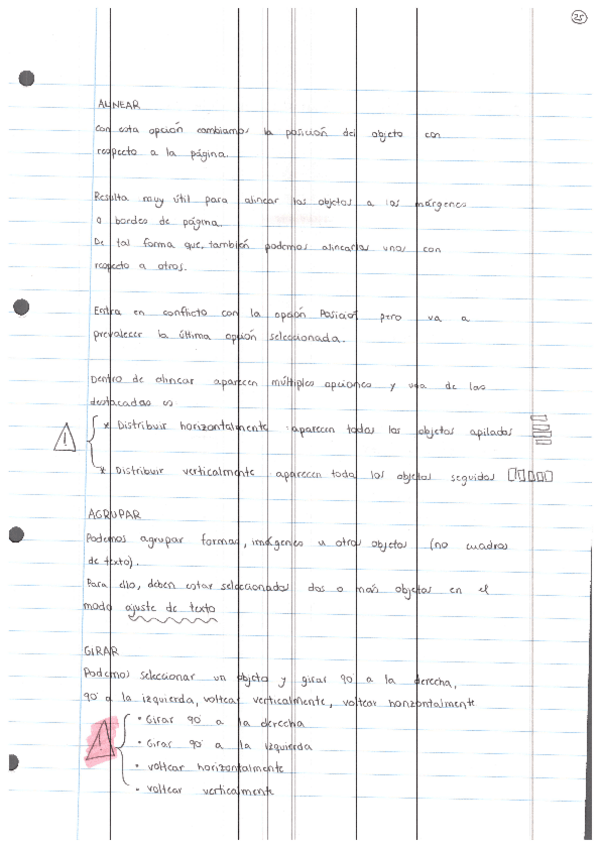 25
ALINEAR
Con esta opción cambiamos la posición del objeto con
respecto a la página.
Resulta muy útil para alinear los objetos a los márgenes
o bordes de página.
De tal forma que, también podemos alinearlos unos con
respecto a otros.
Entra en conflicto con la opción Posición pero va a
prevalecer la última opción seleccionada.
Dentro de alinear aparecen múltiples opciones y una de las
destacadas es
* Distribuir horizontalmente aparecen todos los objetos apilados
!
* Distribuir verticalmente aparecen todo los objetos seguidos
AGRUPAR
Podemos agrupar formas, imágenes u otros objetos (no cuadros
de texto).
Para ello, deben estar seleccionados dos o más objetos en el
modo ajuste de texto
GIRAR
Podemos seleccionar un objeto y girar 90° a la derecha,
90° a la izquierda, voltear verticalmente, voltear horizontalmente
• Girar 90° a la derecha
!
• Girar 90° a la izquierda
• voltear horizontalmente
• voltear verticalmente